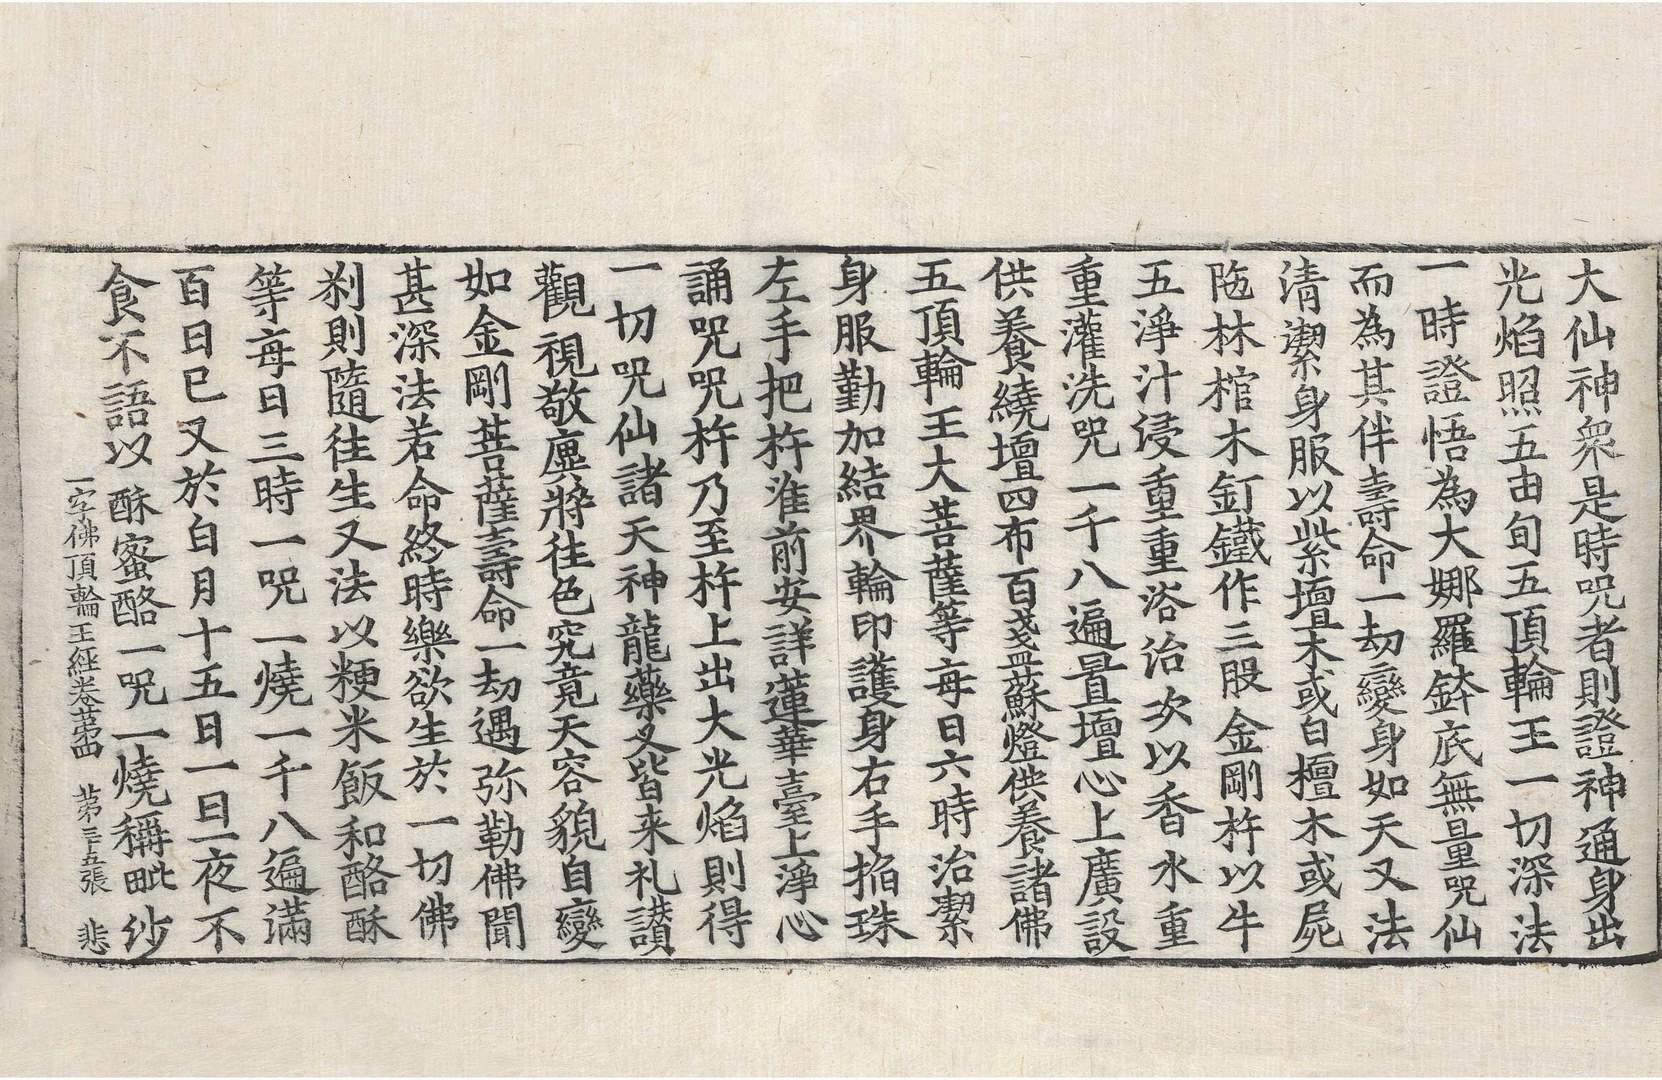 大仙神衆是時呪者則證神通身出
光焰照五由旬五頂輪王一切深法
一時證悟為大娜羅鉢底無量呪仙
而為其伴壽命一劫變身如天又法
清潔身服以紫壇木或白檀木或屍
陁林棺木釘鐵作三股金剛杵以牛
五淨汁浸重重浴治次以香水重
重灌洗呪一千八遍置壇心上廣設
供養繞壇四布百盞蘇燈供養諸佛
五頂輪王大菩薩等每日六時治潔
身服勤加結界輪印護身右手掐珠
左手把杵准前安詳蓮華臺上淨心
誦呪呪杵乃至杵上出大光焰則得
一切呪仙諸天神龍藥叉皆来礼讃
觀視敬塵將往色究竟天容貌自變
如金剛菩薩壽命一劫遇弥勒佛聞
甚深法若命終時樂欲生於一切佛
刹則隨往生又法以粳米飯和酪酥
等每日三時一呪一燒一千八遍滿
百日已又於白月十五日一日一夜不
食不語以酥蜜酪一呪一燒稱毗紗
一字佛頂輪王經卷苐四 苐三五張 悲